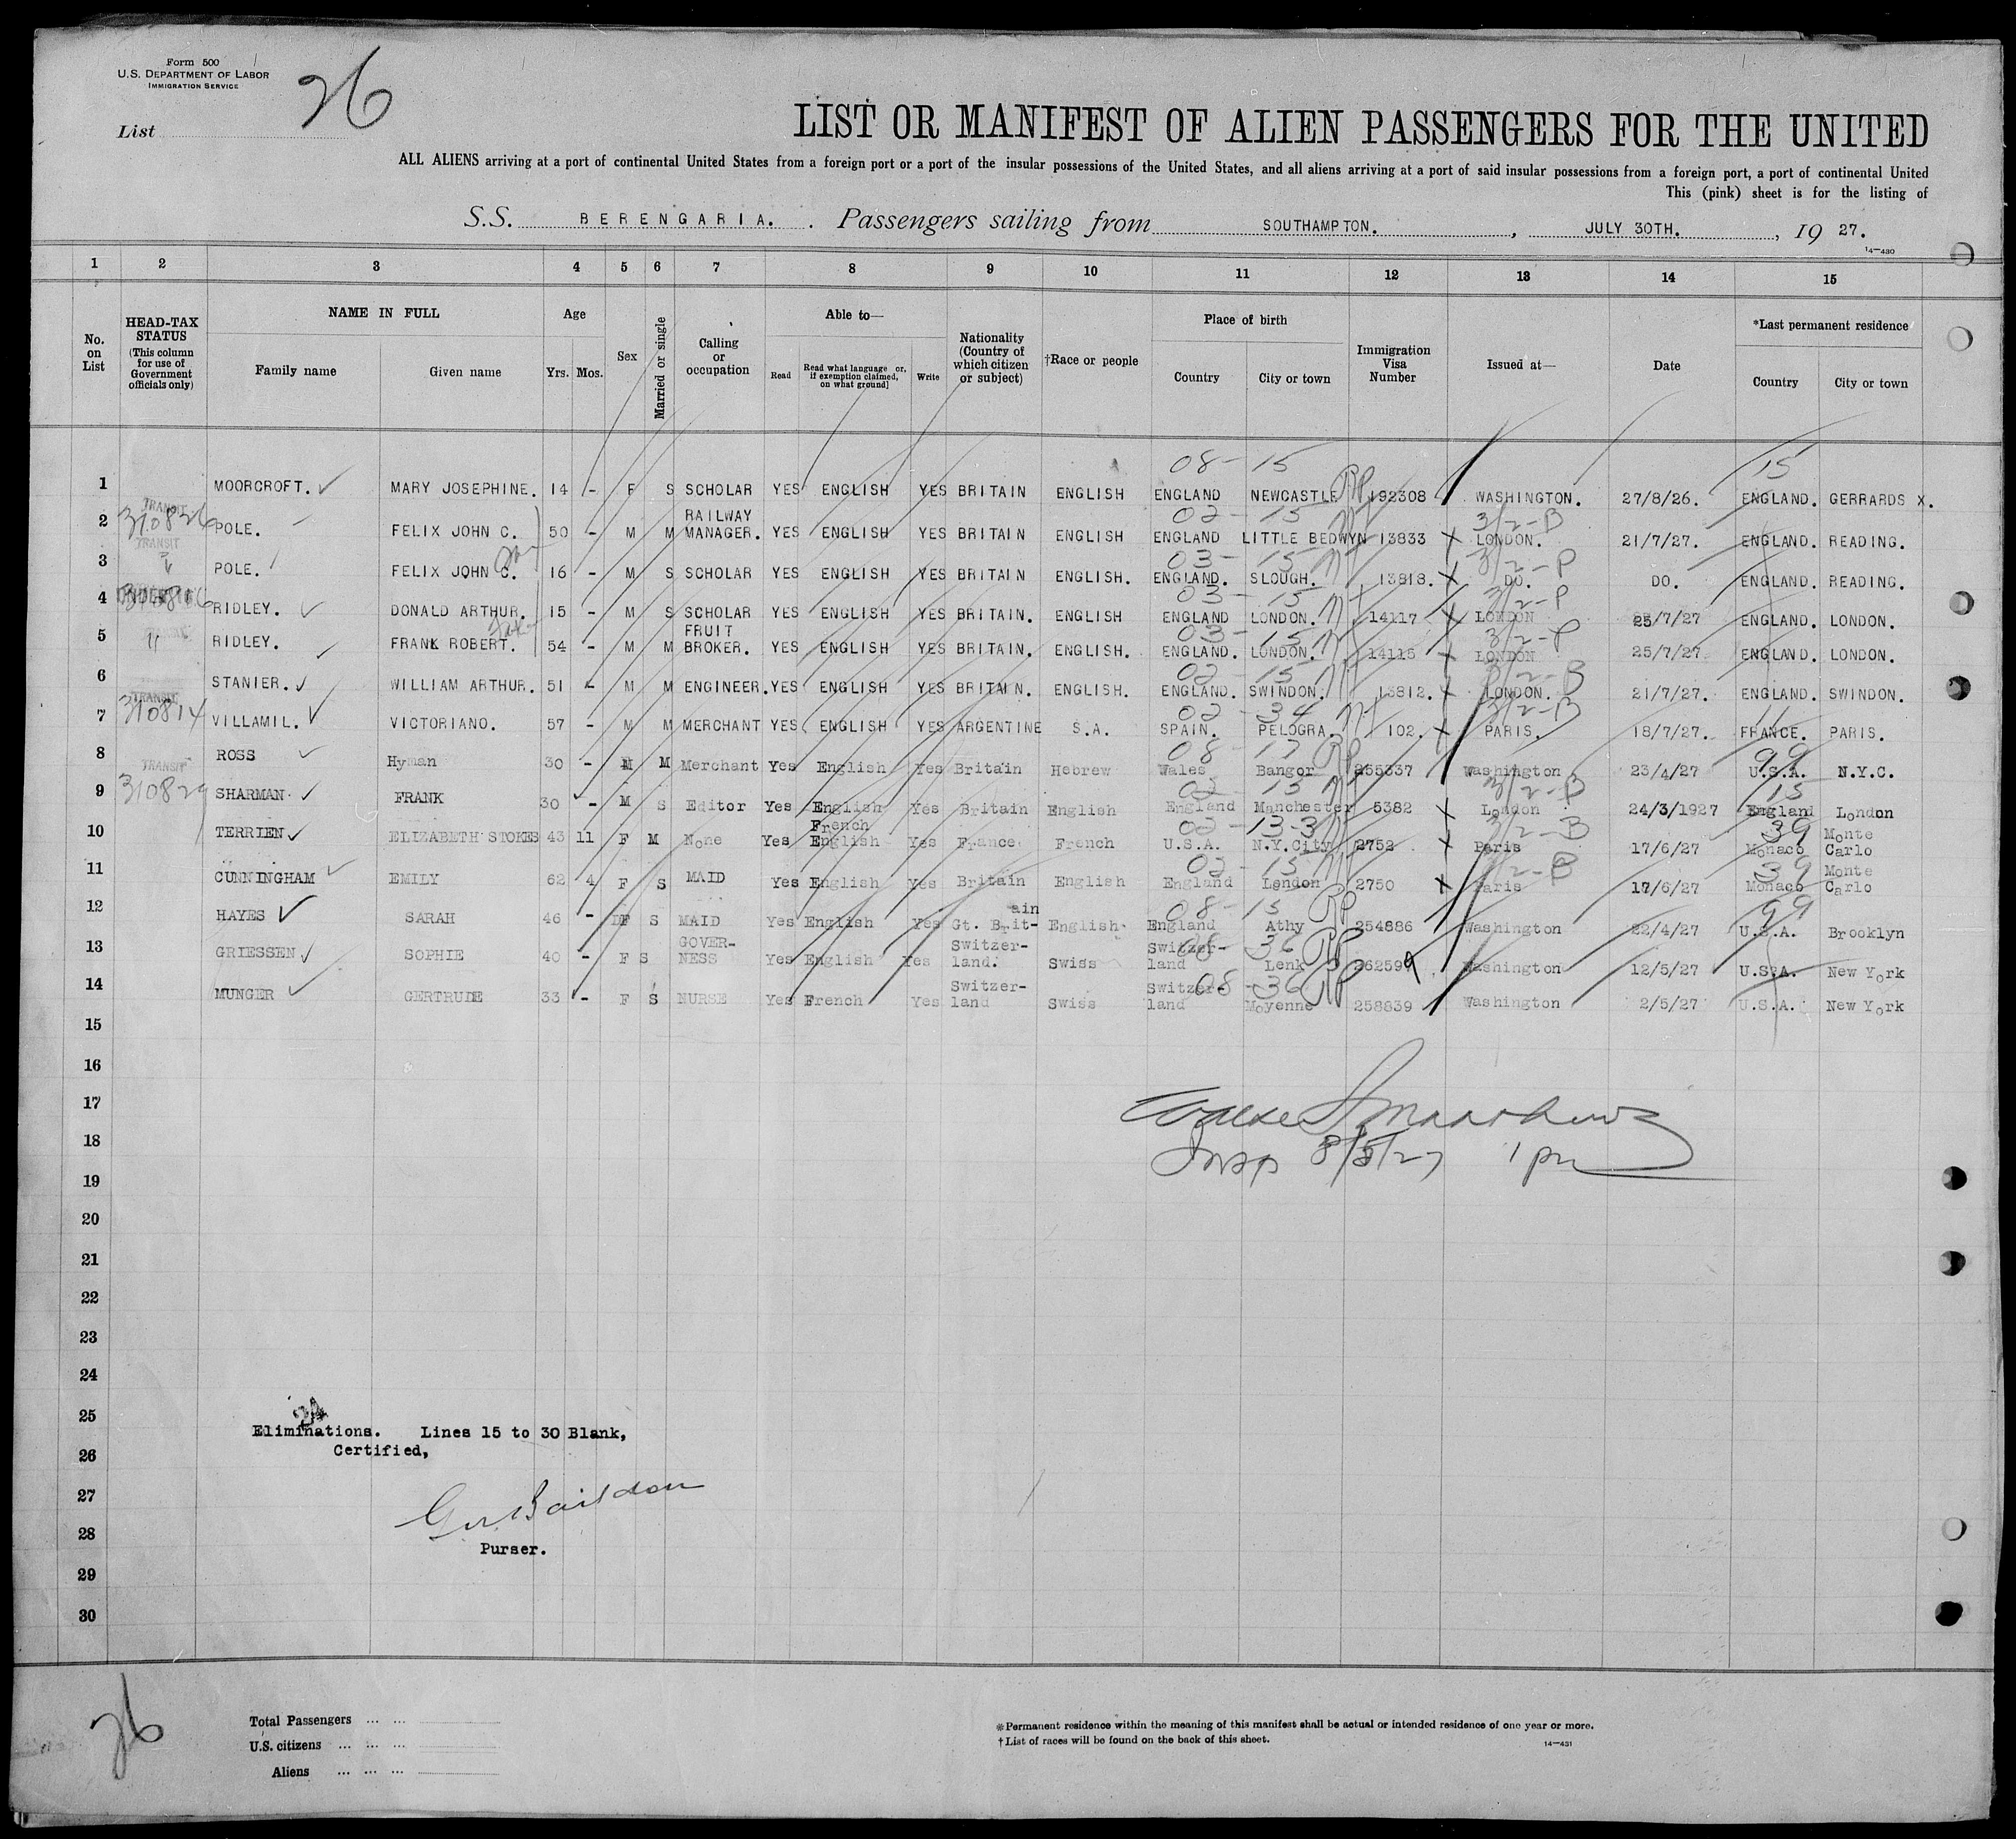 Form 500
U.S. DEPARTMENT OF LABOR
IMMIGRATION SERVICE
26
List
LIST OR MANIFEST OF ALIEN PASSENGERS FOR THE UNITED
ALL ALIENS arriving at a port of continental United States from a foreign port or a port of the insular possessions of the United States, and all aliens arriving at a port of said insular possessions from a foreign port, a port of continental United
This (pink) sheet is for the listing of
S.S. BERENGARIA. Passengers sailing from SOUTHAMPTON. , JULY 30TH. , 19 27.
14—430
1 2 3 4 5 6 7 8 9 10 11 12 13 14 15
No. on List
HEAD-TAX STATUS (This column for use of Government officials only)
NAME IN FULL
Family name
Given name
Age
Yrs. Mos.
Sex
Married or single
Calling or occupation
Able to—
Read
Read what language [or, if exemption claimed, on what ground]
Write
Nationality (Country of which citizen or subject)
†Race or people
Place of birth
Country
City or town
Immigration Visa Number
Issued at—
Date
*Last permanent residence
Country
City or town
08-15 15
1 MOORCROFT. MARY JOSEPHINE. 14 - F S SCHOLAR YES ENGLISH YES BRITAIN ENGLISH ENGLAND NEWCASTLE RP 192308 WASHINGTON. 27/8/26. ENGLAND. GERRARDS X.
TRANSIT 310826 02-15 3/2-B
2 POLE. FELIX JOHN C. 50 - M M RAILWAY MANAGER. YES ENGLISH YES BRITAIN ENGLISH ENGLAND LITTLE BEDWYN 13833 X LONDON. 21/7/27. ENGLAND. READING.
TRANSIT 03-15 3/2-P
3 POLE. FELIX JOHN C. 16 - M S SCHOLAR YES ENGLISH YES BRITAIN ENGLISH. ENGLAND. SLOUGH. 13818. X DO. DO. ENGLAND. READING.
03-15 3/2-P
4 RIDLEY. DONALD ARTHUR. 15 - M S SCHOLAR YES ENGLISH YES BRITAIN. ENGLISH ENGLAND LONDON. 14117 X LONDON 25/7/27 ENGLAND. LONDON.
03-15 3/2-P
5 RIDLEY. FRANK ROBERT. 54 - M M FRUIT BROKER. YES ENGLISH YES BRITAIN. ENGLISH. ENGLAND. LONDON. 14115 X LONDON 25/7/27 ENGLAND. LONDON.
02-15 3/2-B
6 STANIER. WILLIAM ARTHUR. 51 - M M ENGINEER. YES ENGLISH YES BRITAIN. ENGLISH. ENGLAND. SWINDON. 13812. X LONDON. 21/7/27. ENGLAND. SWINDON.
TRANSIT 310814 02-34 3/2-B 11
7 VILLAMIL. VICTORIANO. 57 - M M MERCHANT YES ENGLISH YES ARGENTINE S.A. SPAIN. PELOGRA. 102. X PARIS. 18/7/27. FRANCE. PARIS.
08-17 99
8 ROSS Hyman 30 - M M Merchant Yes English Yes Britain Hebrew Wales Bangor RP 255337 Washington 23/4/27 U.S.A. N.Y.C.
TRANSIT 02-15 3/2-B 15
9 SHARMAN FRANK 30 - M S Editor Yes English Yes Britain English England Manchester 5382 X London 24/3/1927 England London
02-13-3 3/2-B 39
10 TERRIEN ELIZABETH STOKES 43 11 F M None Yes French English Yes France French U.S.A. N.Y.City 2752 X Paris 17/6/27 Monaco Monte Carlo
02-15 39
11 CUNNINGHAM EMILY 62 4 F S MAID Yes English Yes Britain English England London 2750 X Paris 17/6/27 Monaco Monte Carlo
08-15 99
12 HAYES SARAH 46 - F S MAID Yes English Yes Gt. Britain English England Athy RP 254886 Washington 22/4/27 U.S.A. Brooklyn
08-36
13 GRIESSEN SOPHIE 40 - F S GOVERNESS Yes English Yes Switzerland. Swiss Switzerland Lenk RP 262599 Washington 12/5/27 U.S.A. New York
08-36
14 MUNGER GERTRUDE 33 - F S NURSE Yes French Yes Switzerland Swiss Switzerland Moyenne RP 258839 Washington 2/5/27 U.S.A. New York
15
16
17
18
Insp 8/5/27 1 pm
19
20
21
22
23
24
25
Eliminations. Lines 15 to 30 Blank,
26
Certified,
27
28
Purser.
29
30
26
Total Passengers
U.S. citizens
Aliens
*Permanent residence within the meaning of this manifest shall be actual or intended residence of one year or more.
†List of races will be found on the back of this sheet.
14—431